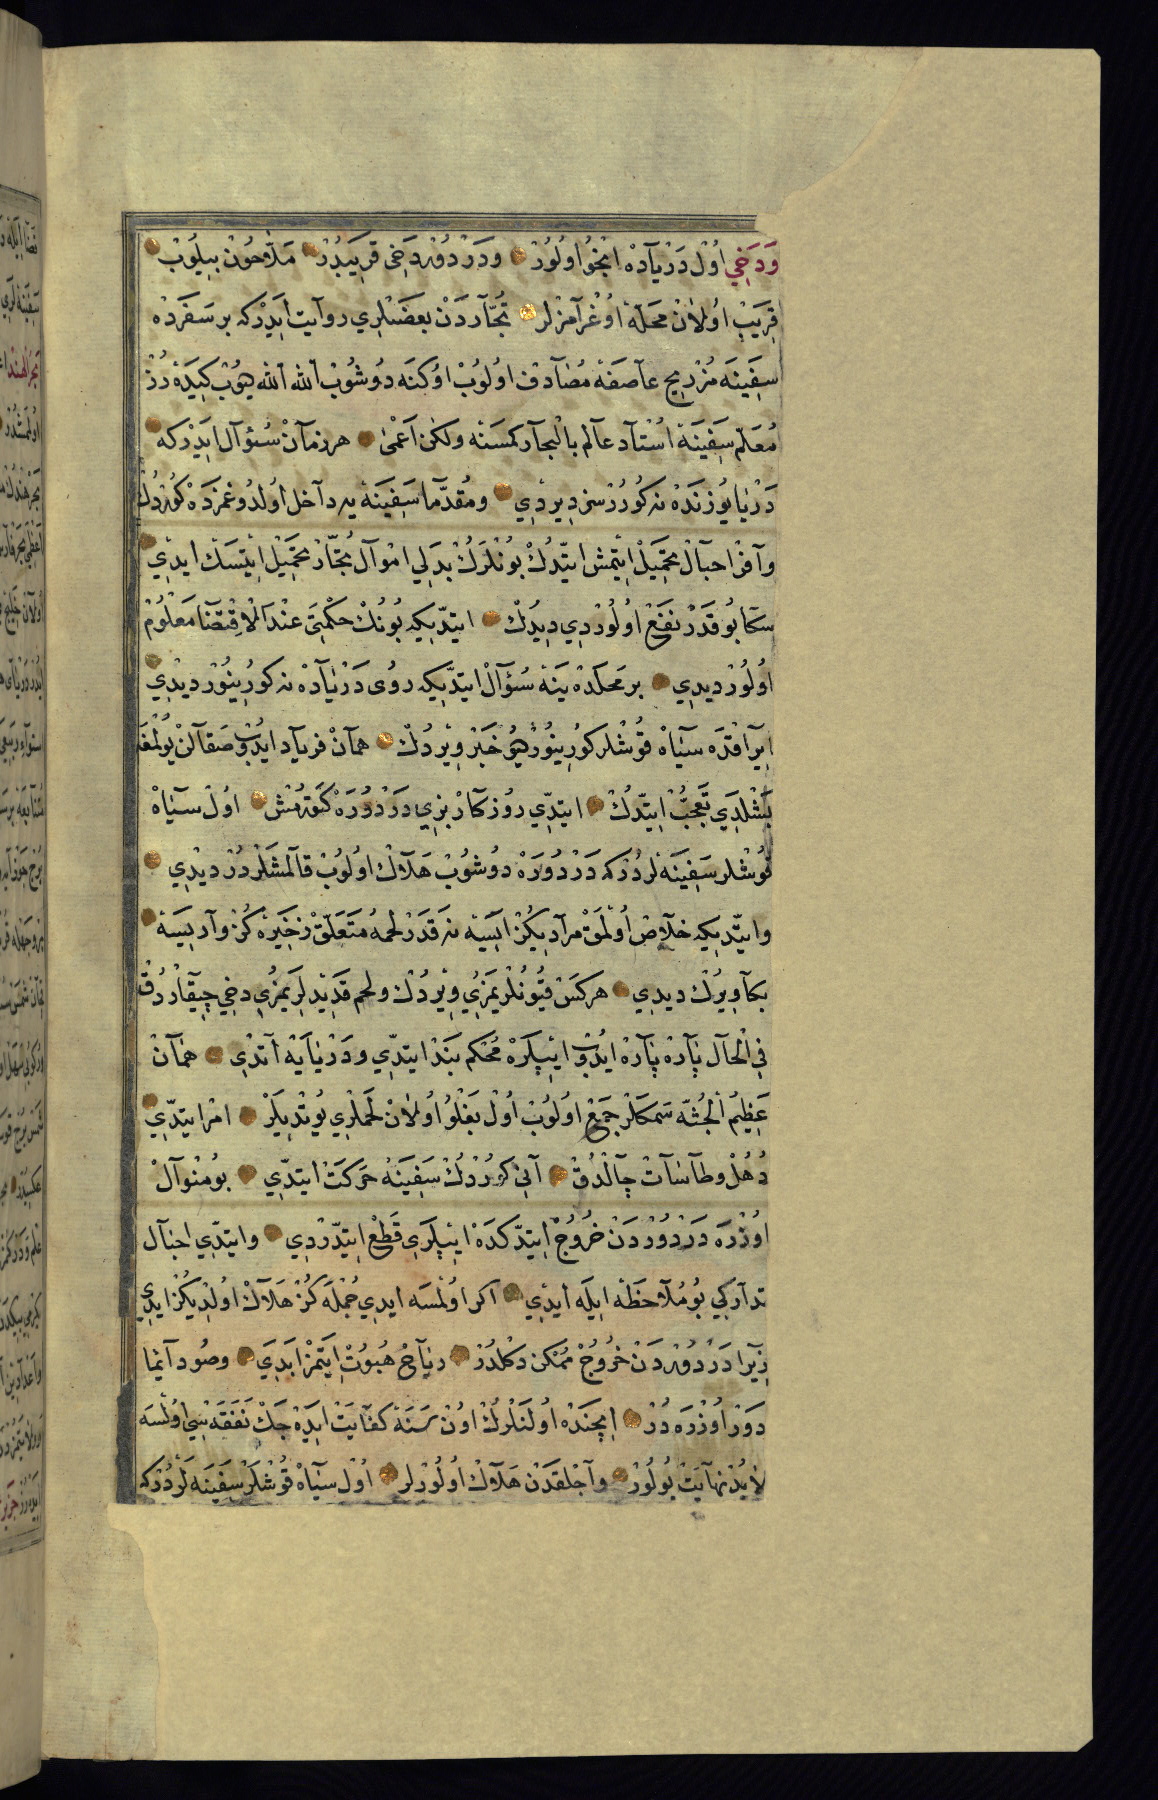 وَدَخِي اُوْل دَرْيَآدَهْ اِنْجُوْ اولُوُرْ ودَرْدُوْر دَخِى قَرِيبْدُرْ مَلَّاحُوْنْ بِيلُوُبْ
قَرِيبْ اُولانْ محَلّهْ اُوغْرَامَزْلَر تُجَّارْدَنْ بَعْضَنْلرِي روايت اَيَدرْكه بر سَفَرْدَهْ
سَفِينَه مُزْ رِيح عَاصِفَهْ مُصَادِف اولُوُبْ اوُكِنَه دُوشُوبْ الله الله ديُوْبْ كِيدَرْزْ
مُعَلِّم سَفِينَهْ اُسْتَاد عَالم بالبِحَار كمسَنَه ولكِن اَعْمٰى هر زمَانْ سُؤَال ايَدَرْكه
دَرْيَا يُوزِنْدَهْ نه كُورُرْسِز ديرْدِي ومُقدّمَا سَفِينَهْ يه دَاخِل اوُلدُوغمزدَهْ كُوردُكْ
وافر احبَال تحمِيلْ اِيتْمش ايتّدُكْ بُونْلَرُكْ بَدَلي امْوَال تُجّارْ تحمِيلْ ايْتسَك ايدِي
سكا بُوقَدَرْ نَفَعْ اولُوُرْدِي ديدُكْ ايتدِيكِه بُونُكْ حِكْمَتِى عِنْدَالاِقْتِضَا مَعْلُومْ
اُولُوُرْ ديدِي بر محَلدَهْ يَنَه سُؤَالْ ايتدّيكِه روُى دَرْيَادَهْ نه كورِينُورْ ديْدِي
ايراقْدَه سيَاهْ قُوشْلَر كورِينُورْ ديُو خَبَرْ ويرْدُكْ همَانْ فريَاد ايدُوب صَقَالنْ يُولْمَغَه
بَشْلَدِي تَعَجُّبْ ايتّدُكْ ايتدّي روُزكَارْ بِزِي دَرْدُوُرَهْ كَتورْمُش اُوْل سيَاهْ
قُوشْلَر سَفِينَه لَردُرْكه دَرْدُورَهْ دوُشُوبْ هَلَاكْ اولُوُبْ قالمشلَرْدُرْ ديْدِي
وايتّديكه خلاصْ اُولْمَقْ مرَاديكُزْ ايسَه نه قَدَرْ لَحْمه مُتَعَلّقْ ذَخِيرَهْ كُزْ وَار ايسَه
بكا ويرُكْ ديدِي هركَسْ قُيُونْلَريمزِي ويرْدُكْ ولحم قَدِيدلَريمزِي دخي چيقَارْدُقْ
فِي الْحَال پَارَه پَارَه ايدُوب ايپلَرَهْ مُحْكَم بَنْد ايتدّي ودَرْيَايَهْ اتدِي همَانْ
عَظِيمُ الْجُثّه سَمكلَرْ جَمعْ اولُوُبْ اُوْل بَغْلُو اُولانْ لَحْمَلَرِي يُوتْديلَرْ امْر ايتدّي
دُهُلْ وطَاسَاتْ چَالْدُقْ آنِى كورْدُكْ سَفِينَهْ حَركَتْ ايتدّي بُومِنْوَالْ
اوُزْرَه دَرْدُوْرْدَنْ خُرُوُجْ ايتدّكدَهْ ايپلَرِي قَطْع ايتدّرْدِي وايتدّي احبَال
تدَارُكِي بُومُلَاحَظَه ايلَه ايدِي اكر اُولْمسَه ايدِي جُمْلَه كُزْ هَلَاكْ اولُورْديكُزْ ايدِي
زيرَا دَرْدُوْردَنْ خُرُوُجْ مُمْكن دكلدُرْ ريَاحْ هُبُوُبْ ايتَمَزْ اَبَدِي وصُو دَائِمَا
دَوَر اوُزْرَه دُرْ اِيچِنْدَهْ اُولَنْلَرُكْ اُونْ سَنَهْ كفَايَتْ ايدَهْ جَكْ نَفَقَه سِي اُولْسَه
لابُدّ نهَايَتْ بُولُورْ وآجْلقدَنْ هَلَاكْ اُولُورْلر اُوْل سيَاهْ قُوشْلَرْ سَفِينَه لَرْدُرْكه